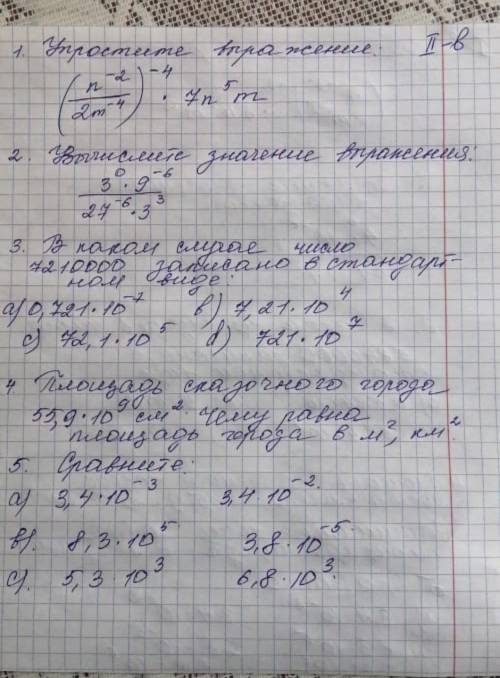 1. Упростите выражение: II-в
(n⁻² / 2m⁻⁴)⁻⁴ · 7n⁵m
2. Вычислите значение выражения:
3⁰ · 9⁻⁶
27⁻⁶ · 3³
3. В каком случае число
7210000 записано в стандарт-
ном виде:
а) 0,721 · 10⁻⁷ в) 7,21 · 10⁴
с) 72,1 · 10⁵ d) 721 · 10⁷
4. Площадь сказочного города
55,9 · 10⁹ см². Чему равна
площадь города в м², км².
5. Сравните:
а) 3,4 · 10⁻³ 3,4 · 10⁻².
в). 8,3 · 10⁵ 3,8 · 10⁻⁵.
с). 5,3 · 10³ 6,8 · 10³.